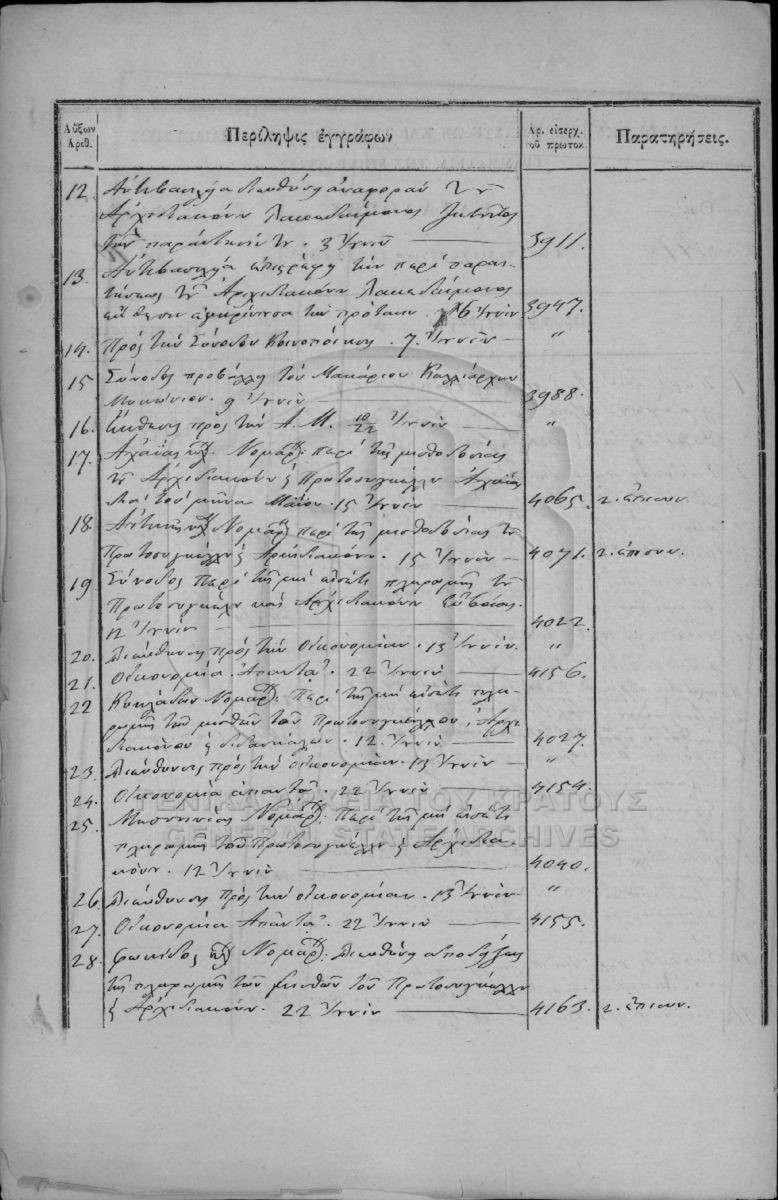 Αὔξων Ἀριθ. Περίληψις ἐγγράφων Ἀρ. εἰσερχ. τοῦ πρωτοκ. Παρατηρήσεις.
12. διευθύνει ἀναφορὰν τοῦ
Ἀρχιδιακόνου Λακεδαίμονος
τὴν παραίτησίν του. 3 Ἰουνίου 3911.
13. ἐπιστρέφει τὴν περὶ παραι-
τήσεως τοῦ Ἀρχιδιακόνου Λακεδαίμονος
ἔκθεσιν τὴν πρότασιν. 6 Ἰουνίου 3947.
14. Πρὸς τὴν Σύνοδον Κοινοποίησις. 7 Ἰουνίου "
15 Σύνοδος προβάλλει τὸν Μακάριον Καλλιάρχην
9 Ἰουνίου 3988.
16. Ἔκθεσις πρὸς τὴν Α. Μ. 10/22 Ἰουνίου "
17. Ἀχαΐας Νομαρ: περὶ τῆς μισθοδοσίας
τοῦ Ἀρχιδιακόνου & Πρωτοσυγκέλλου Ἀχαΐας
διὰ τὸν μῆνα Μάϊον. 15 Ἰουνίου 4065. ἐπισυν.
18. Ἀττικῆς Νομαρ: περὶ τῆς μισθοδοσίας τοῦ
Πρωτοσυγκέλλου & Ἀρχιδιακόνου. 15 Ἰουνίου 4071. ἐπισυν.
19 Σύνοδος Περὶ τῆς μὴ εἰσέτι πληρωμῆς τοῦ
Πρωτοσυγκέλλου καὶ Ἀρχιδιακόνου Εὐβοίας.
12 Ἰουνίου 4022.
20. Διεύθυνσις πρὸς τὴν Οἰκονομίαν. 13 Ἰουνίου. "
21. Οἰκονομία Ἀπαντᾷ. 22 Ἰουνίου 4156.
22 Κυκλάδων Νομαρ: Περὶ τῆς μὴ εἰσέτι πλη-
ρωμῆς τῶν μισθῶν τοῦ Πρωτοσυγκέλλου, Ἀρχι-
διακόνου & διδασκάλων. 12. Ἰουνίου 4027.
23. Διεύθυνσις πρὸς τὴν Οἰκονομίαν. 13 Ἰουνίου "
24. Οἰκονομία ἀπαντᾷ. 22 Ἰουνίου 4154.
25. Μεσσηνίας Νομαρ: Περὶ τῆς μὴ εἰσέτι
πληρωμῆς τοῦ Πρωτοσυγκέλλου & Ἀρχιδια-
κόνου. 12 Ἰουνίου 4040.
26. Διεύθυνσις πρὸς τὴν οἰκονομίαν. 13 Ἰουνίου "
27. Οἰκονομία Ἀπαντᾷ. 22 Ἰουνίου 4155.
28. Φωκίδος Νομαρ: Διευθύνει ἀποδείξεις
τῆς πληρωμῆς τῶν μισθῶν τοῦ Πρωτοσυγκέλλου
& Ἀρχιδιακόνου. 22 Ἰουνίου 4163. ἐπισυν.
ΓΕΝΙΚΑ ΑΡΧΕΙΑ ΤΟΥ ΚΡΑΤΟΥΣ
GENERAL STATE ARCHIVES